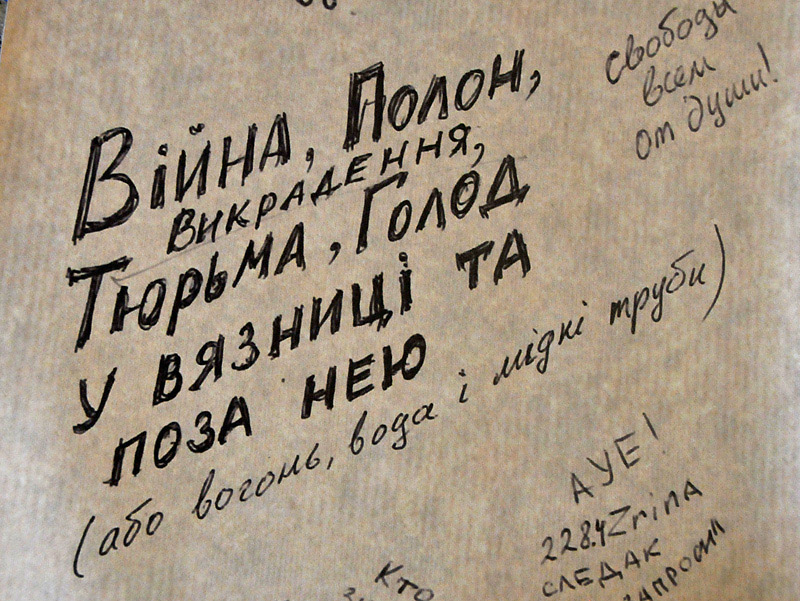 Війна, Полон,
Викрадення,
Тюрьма, Голод
у вязниці та
поза нею
(або вогонь, вода і мідні труби)
свободы
всем
от души!
АУЕ!
228.4Zrina
следак
Кто